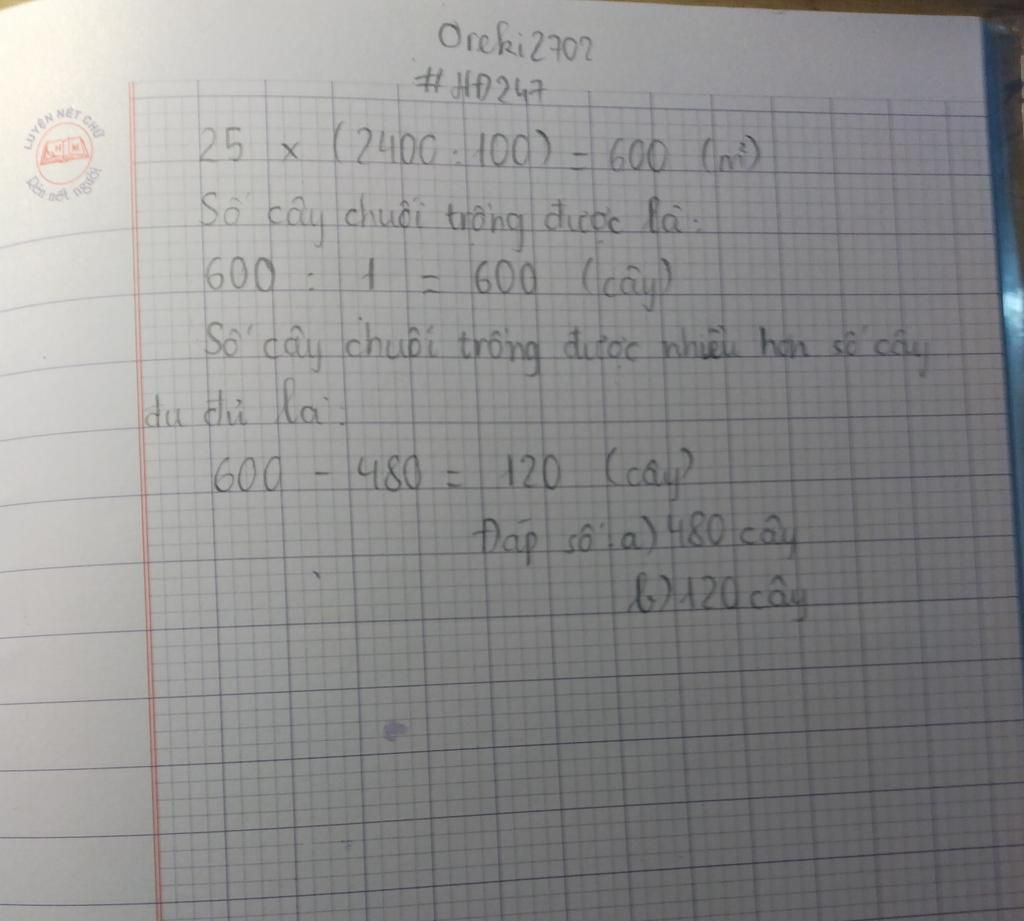 Oreki2702
#HĐ247
LUYỆN NÉT CHỮ
Rèn nết người
25 x (2400 : 100) = 600 (m²)
Số cây chuối trồng được là:
600 : 1 = 600 (cây)
Số cây chuối trồng được nhiều hơn số cây
đu đủ là:
600 - 480 = 120 (cây)
Đáp số: a) 480 cây
b) 120 cây